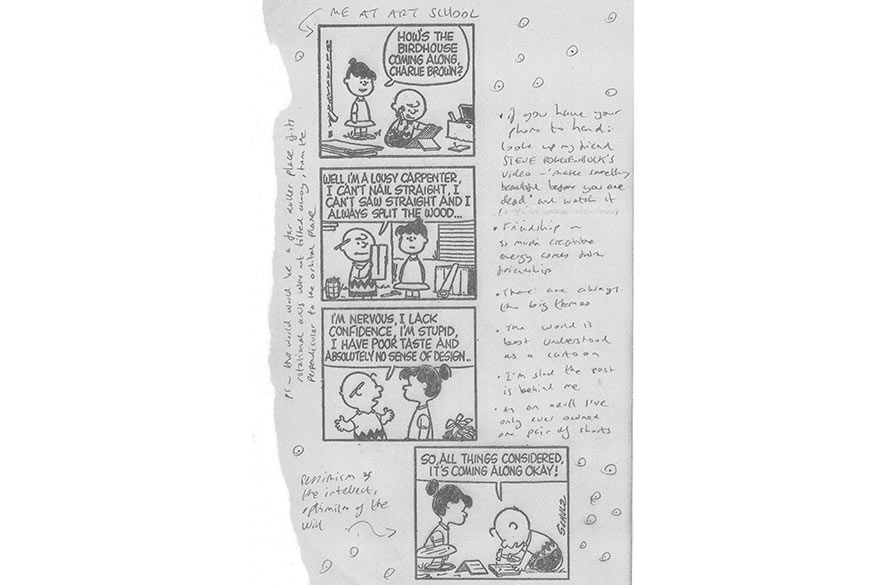 ME AT ART SCHOOL
HOW'S THE
BIRDHOUSE
COMING ALONG,
CHARLIE BROWN?
WELL, I'M A LOUSY CARPENTER,
I CAN'T NAIL STRAIGHT, I
CAN'T SAW STRAIGHT AND I
ALWAYS SPLIT THE WOOD...
I'M NERVOUS, I LACK
CONFIDENCE, I'M STUPID,
I HAVE POOR TASTE AND
ABSOLUTELY NO SENSE OF DESIGN..
SO, ALL THINGS CONSIDERED,
IT'S COMING ALONG OKAY!
SCHULZ
PS – the world would be a far duller place if its
rotational axis were not tilted away, from the
perpendicular to the orbital plane
pessimism of
the intellect,
optimism of the
will
• if you have your
phone to hand:
look up my friend
STEVE ROGGENBUCK'S
video – 'make something
beautiful before you are
dead' and watch it
• Friendship –
so much creative
energy comes from
friendship
• There are always
the big themes
• The world is
best understood
as a cartoon
• I'm glad the past
is behind me
• As an adult I've
only ever owned
one pair of shorts